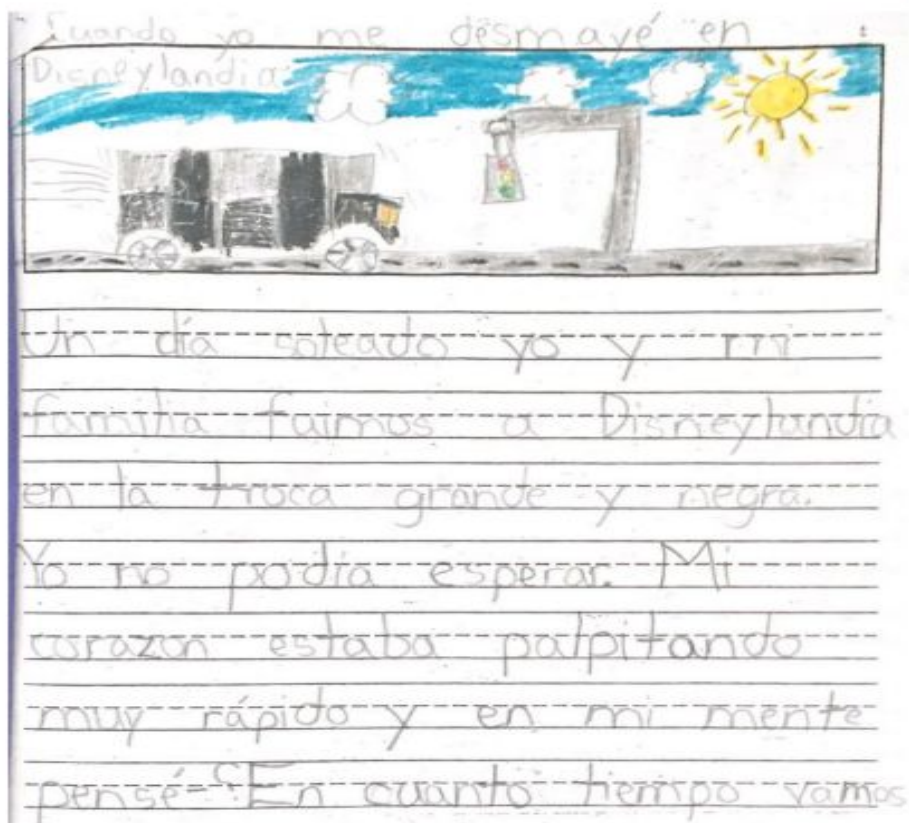 Cuando yo me desmayé en
Disneylandia
Un día soleado yo y mi
familia fuimos a Disneylandia
en la troca grande y negra.
Yo no podía esperar. Mi
corazon estaba palpitando
muy rápido y en mi mente
pensé-¿En cuanto tiempo vamos